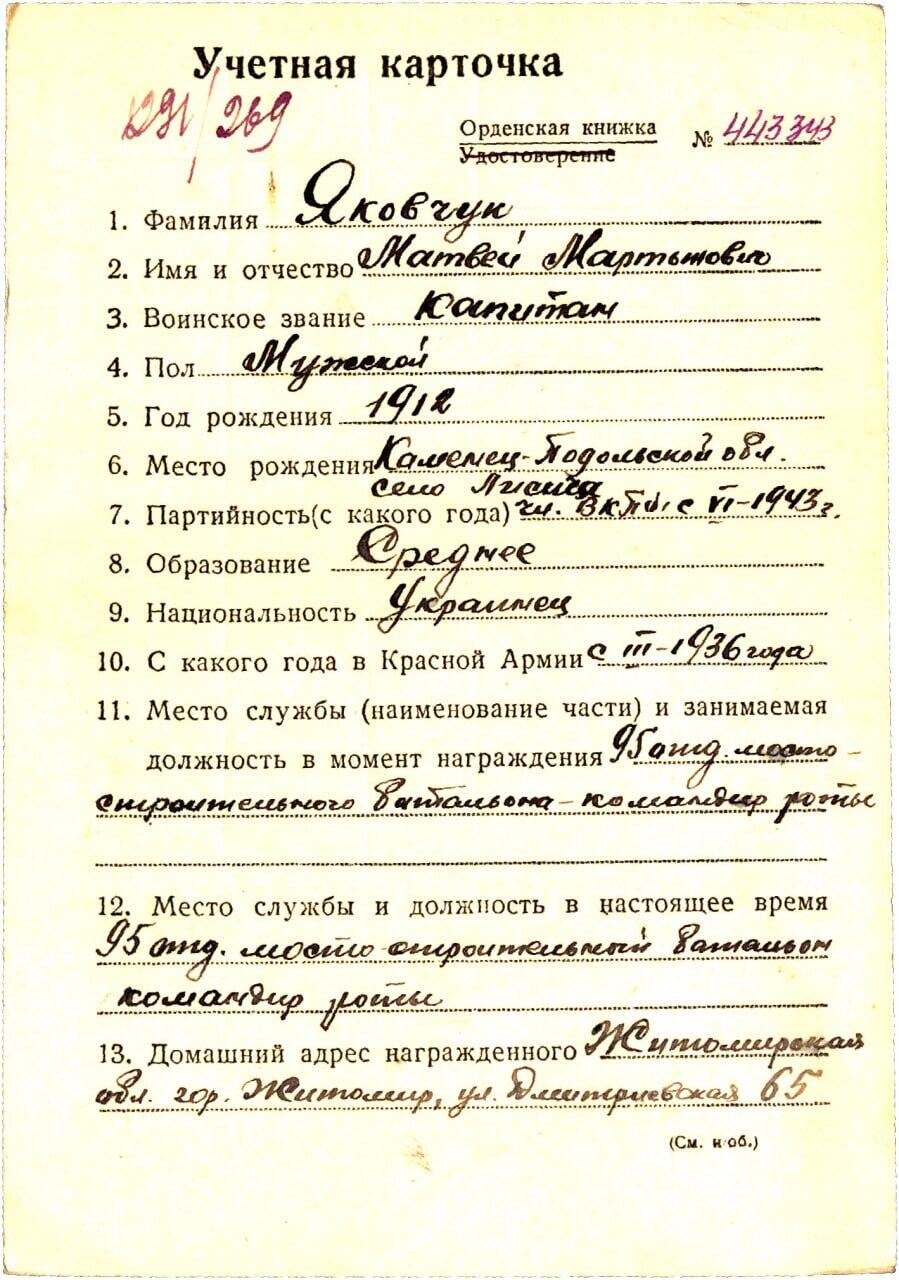 Учетная карточка
1291/269
Орденская книжка № 443343
Удостоверение
1. Фамилия Яковчук
2. Имя и отчество Матвей Мартынович
3. Воинское звание Капитан
4. Пол Мужской
5. Год рождения 1912
6. Место рождения Каменец-Подольской обл.
село
7. Партийность (с какого года) чл. ВКПб с VI-1943 г.
8. Образование Среднее
9. Национальность Украинец
10. С какого года в Красной Армии с III-1936 года
11. Место службы (наименование части) и занимаемая
должность в момент награждения 95 отд. мосто-
строительного батальона - командир роты
12. Место службы и должность в настоящее время
95 отд. мосто-строительный батальон
командир роты
13. Домашний адрес награжденного Житомирская
обл. гор. Житомир, ул. Дмитриевская 65
(См. н/об.)